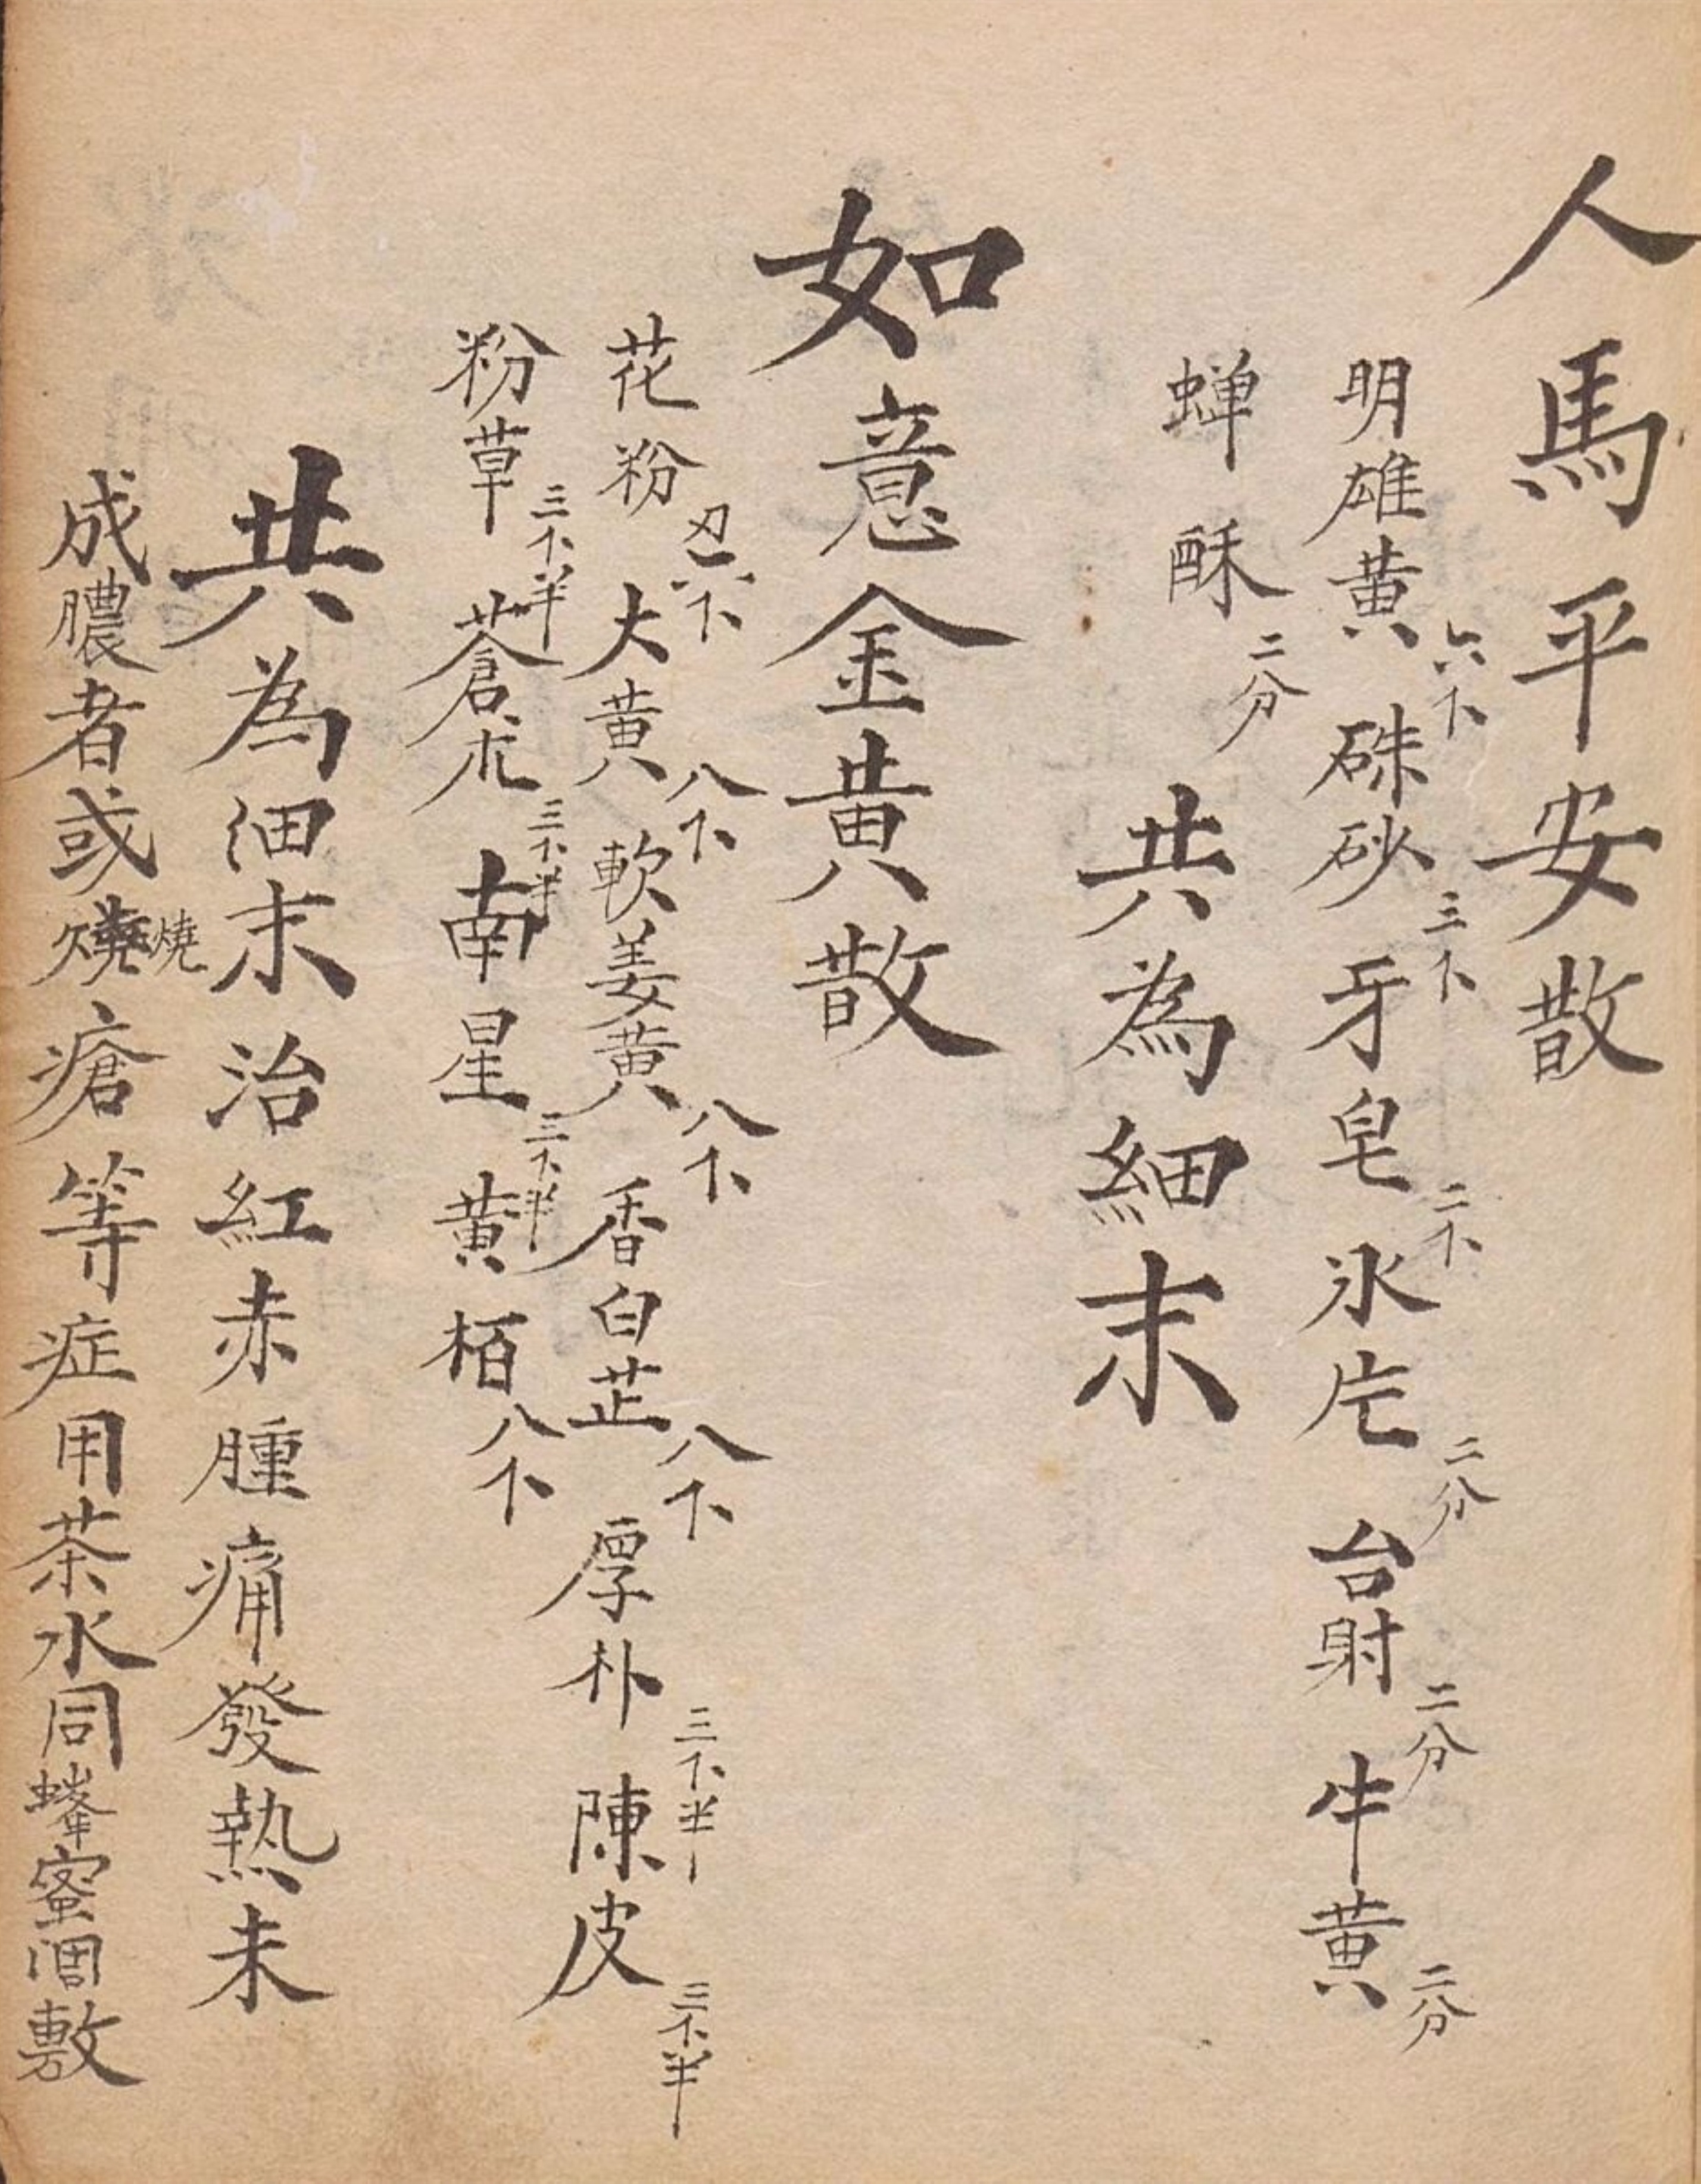 人馬平安散
明雄黄六个 硃砂三个 牙皂二个 氷片二分 台射二分 牛黄二分
蝉酥二分 共為細末
如意金黄散
花粉 大黄八个 軟姜黄八个 香白芷八个 厚朴三个半 陳皮三个半
粉草三个半 蒼朮三个半 南星三个半 黄栢八个
共為细末治紅赤腫痛發熱未
成膿者或燒燒瘡等症用茶水同蜂蜜调敷